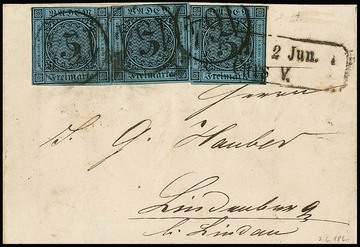 BADEN BADEN BADEN
3 3 3
Freimarke Freimarke Freimarke
2 Jun.
V.
Herrn
J. G. Hauber
Lindenberg
b. Lindau